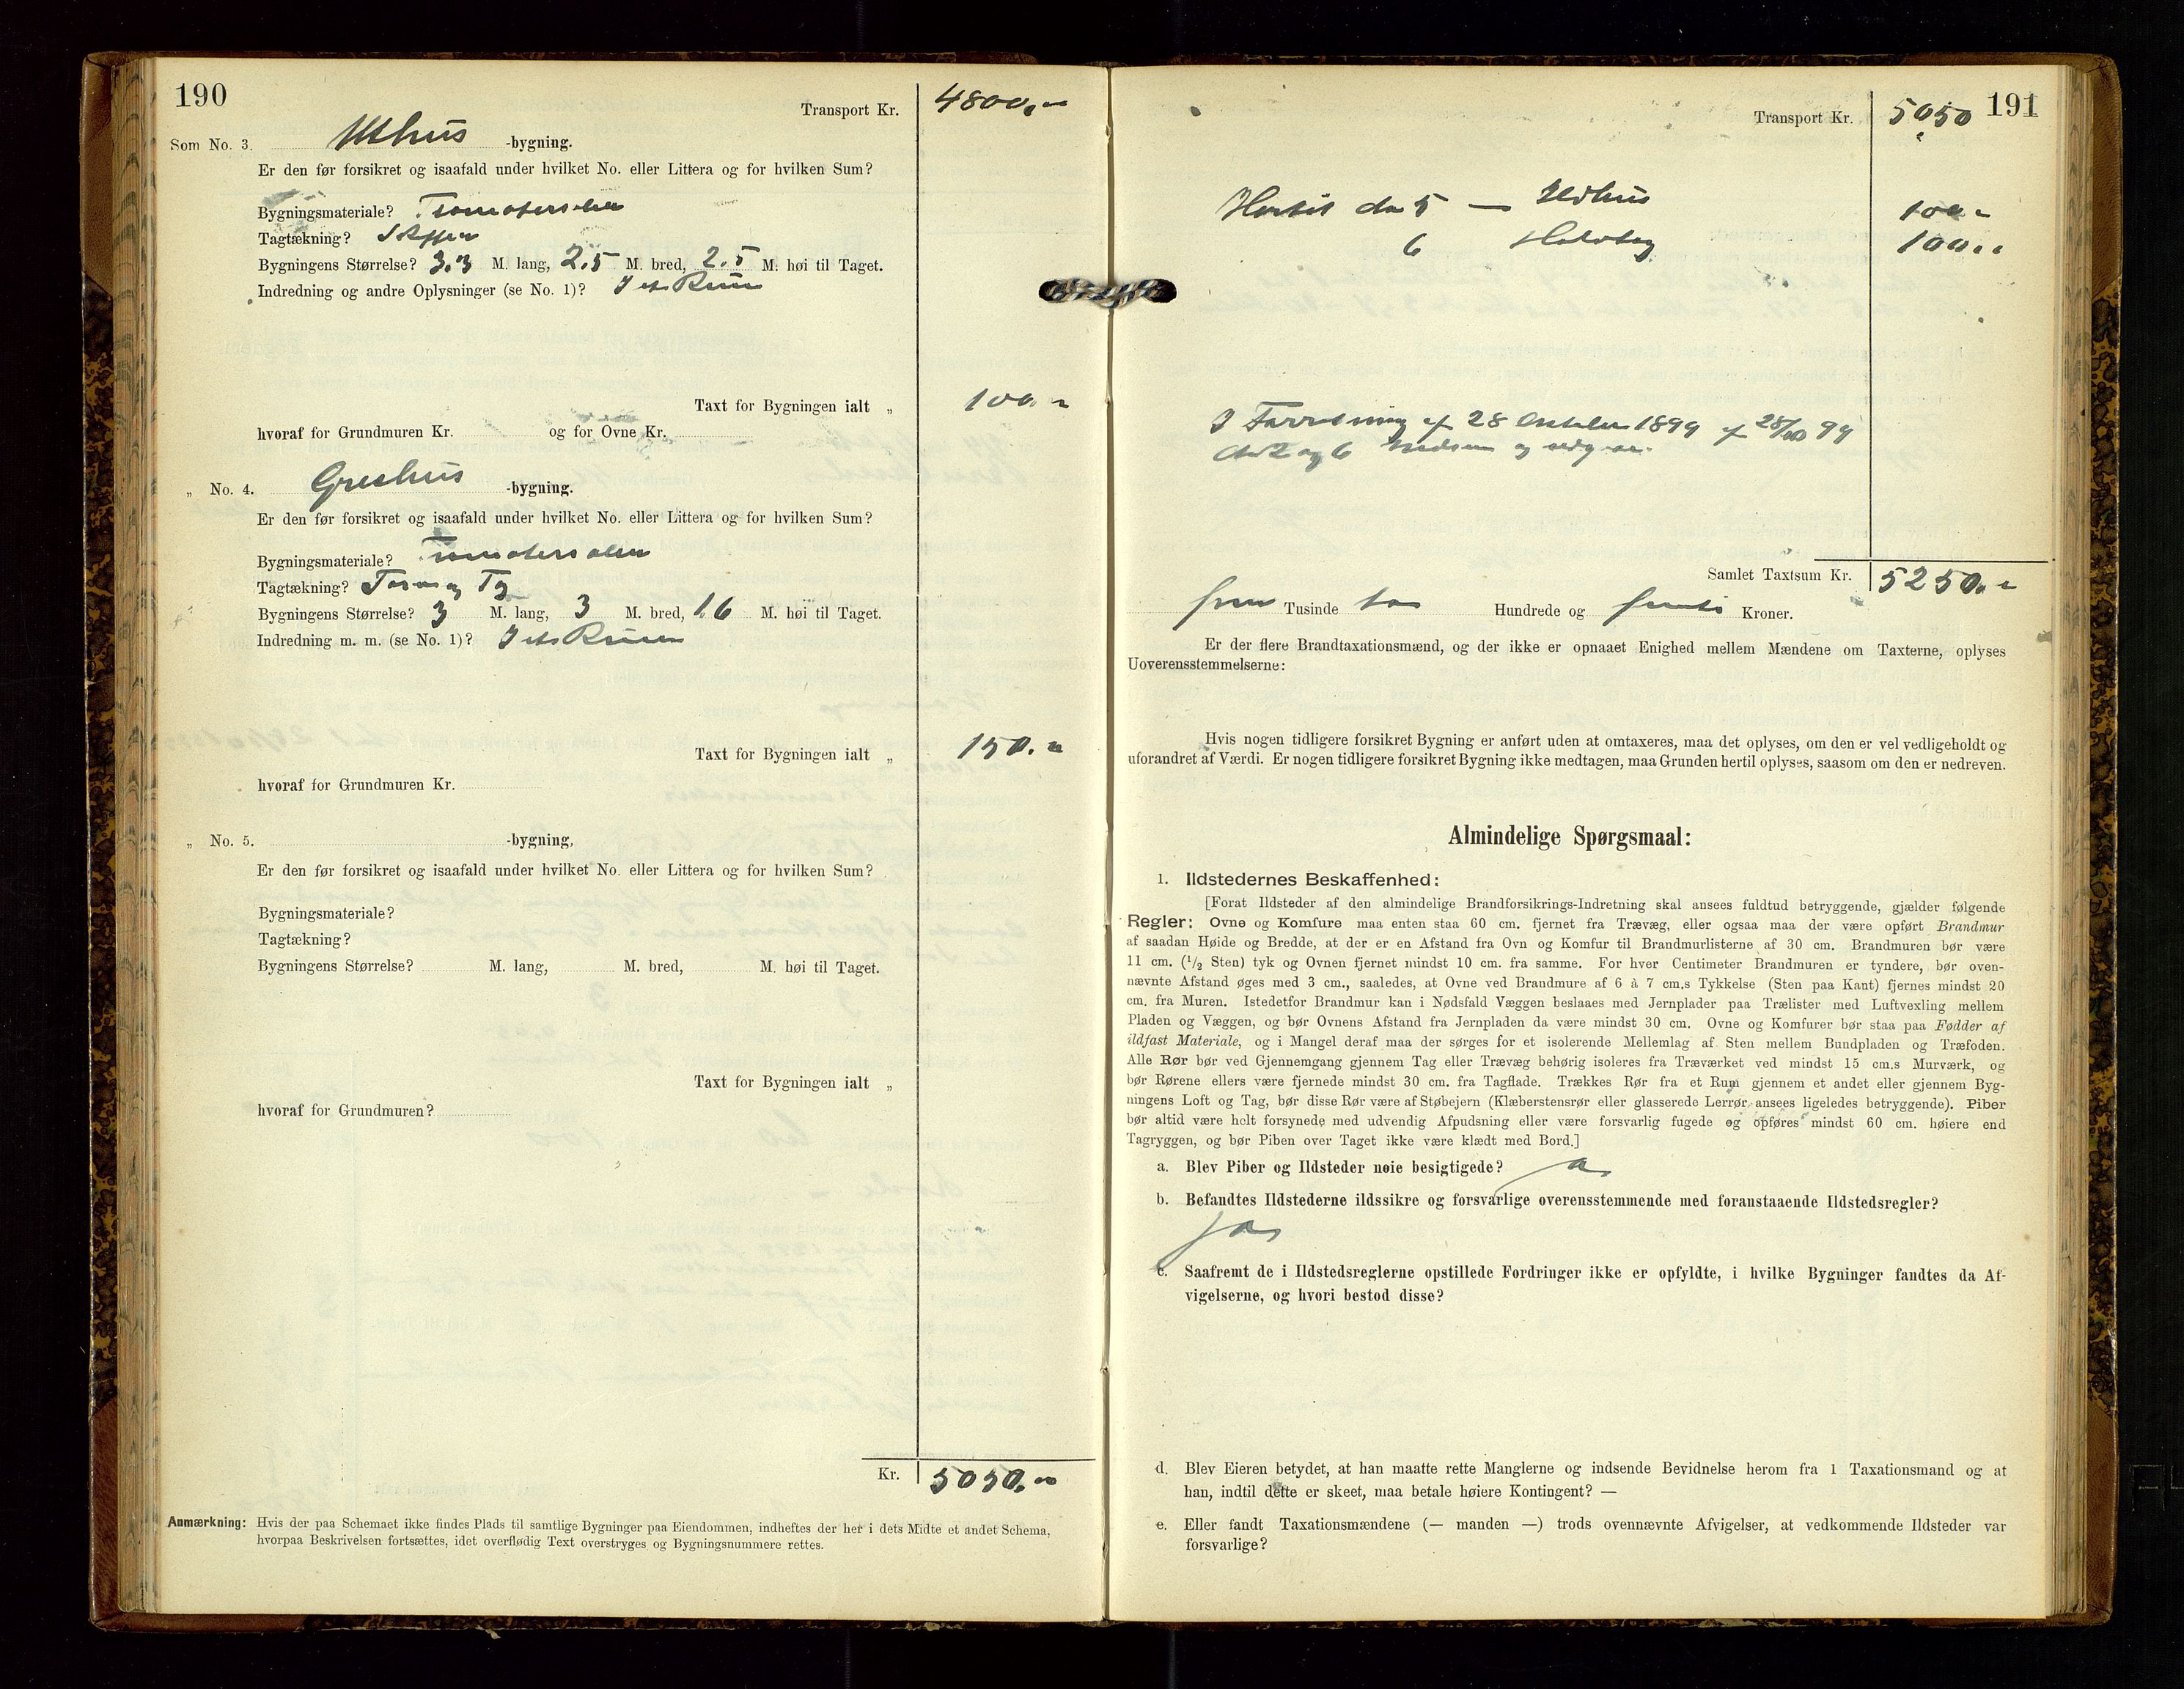 190
Transport Kr. 4800.-
Som No. 3. Uthus -bygning.
Er den før forsikret og isaafald under hvilket No. eller Littera og for hvilken Sum?
Bygningsmateriale? Træmaterialier
Tagtækning? Skiffer
Bygningens Størrelse? 3.3 M. lang, 2.5 M. bred, 2.5 M. høi til Taget.
Indredning og andre Oplysninger (se No. 1)? I et Rum
Taxt for Bygningen ialt „ 100.-
hvoraf for Grundmuren Kr. og for Ovne Kr.
„ No. 4. Grishus -bygning.
Er den før forsikret og isaafald under hvilket No. eller Littera og for hvilken Sum?
Bygningsmateriale? Træmaterialier
Tagtækning? Torv og
Bygningens Størrelse? 3 M. lang, 3 M. bred, 1.6 M. høi til Taget.
Indredning m. m. (se No. 1)? I et Rum
Taxt for Bygningen ialt „ 150.-
hvoraf for Grundmuren Kr.
„ No. 5. -bygning,
Er den før forsikret og isaafald under hvilket No. eller Littera og for hvilken Sum?
Bygningsmateriale?
Tagtækning?
Bygningens Størrelse? M. lang, M. bred, M. høi til Taget.
Taxt for Bygningen ialt „
hvoraf for Grundmuren?
Kr. 5050.-
Anmærkning: Hvis der paa Schemaet ikke findes Plads til samtlige Bygninger paa Eiendommen, indheftes der her i dets Midte et andet Schema,
hvorpaa Beskrivelsen fortsættes, idet overflødig Text overstryges og Bygningsnummere rettes.
191
Transport Kr. 5050
Hertil 5 — Ildhus 100.-
6 100.-
I Forretning af 28 Oktober 1899 28/10 99
og 6 og
Samlet Taxtsum Kr. 5250.-
fem Tusinde to Hundrede og femti Kroner.
Er der flere Brandtaxationsmænd, og der ikke er opnaaet Enighed mellem Mændene om Taxterne, oplyses
Uoverensstemmelserne:
Hvis nogen tidligere forsikret Bygning er anført uden at omtaxeres, maa det oplyses, om den er vel vedligeholdt og
uforandret af Værdi. Er nogen tidligere forsikret Bygning ikke medtagen, maa Grunden hertil oplyses, saasom om den er nedreven.
Almindelige Spørgsmaal:
1. Ildstedernes Beskaffenhed:
[Forat Ildsteder af den almindelige Brandforsikrings-Indretning skal ansees fuldtud betryggende, gjælder følgende
Regler: Ovne og Komfure maa enten staa 60 cm. fjernet fra Trævæg, eller ogsaa maa der være opført Brandmur
af saadan Høide og Bredde, at der er en Afstand fra Ovn og Komfur til Brandmurlisterne af 30 cm. Brandmuren bør være
11 cm. (1/2 Sten) tyk og Ovnen fjernet mindst 10 cm. fra samme. For hver Centimeter Brandmuren er tyndere, bør oven-
nævnte Afstand øges med 3 cm., saaledes, at Ovne ved Brandmure af 6 à 7 cm.s Tykkelse (Sten paa Kant) fjernes mindst 20
cm. fra Muren. Istedetfor Brandmur kan i Nødsfald Væggen beslaaes med Jernplader paa Trælister med Luftvexling mellem
Pladen og Væggen, og bør Ovnens Afstand fra Jernpladen da være mindst 30 cm. Ovne og Komfurer bør staa paa Fødder af
ildfast Materiale, og i Mangel deraf maa der sørges for et isolerende Mellemlag af Sten mellem Bundpladen og Træfoden.
Alle Rør bør ved Gjennemgang gjennem Tag eller Trævæg behørig isoleres fra Træværket ved mindst 15 cm.s Murværk, og
bør Rørene ellers være fjernede mindst 30 cm. fra Tagflade. Trækkes Rør fra et Rum gjennem et andet eller gjennem Byg-
ningens Loft og Tag, bør disse Rør være af Støbejern (Klæberstensrør eller glasserede Lerrør ansees ligeledes betryggende). Piber
bør altid være helt forsynede med udvendig Afpudsning eller være forsvarlig fugede og opføres mindst 60 cm. høiere end
Tagryggen, og bør Piben over Taget ikke være klædt med Bord.]
a. Blev Piber og Ildsteder nøie besigtigede? Ja
b. Befandtes Ildstederne ildssikre og forsvarlige overensstemmende med foranstaaende Ildstedsregler?
Ja
c. Saafremt de i Ildstedsreglerne opstillede Fordringer ikke er opfyldte, i hvilke Bygninger fandtes da Af-
vigelserne, og hvori bestod disse?
d. Blev Eieren betydet, at han maatte rette Manglerne og indsende Bevidnelse herom fra 1 Taxationsmand og at
han, indtil dette er skeet, maa betale høiere Kontingent? —
e. Eller fandt Taxationsmændene (— manden —) trods ovennævnte Afvigelser, at vedkommende Ildsteder var
forsvarlige?